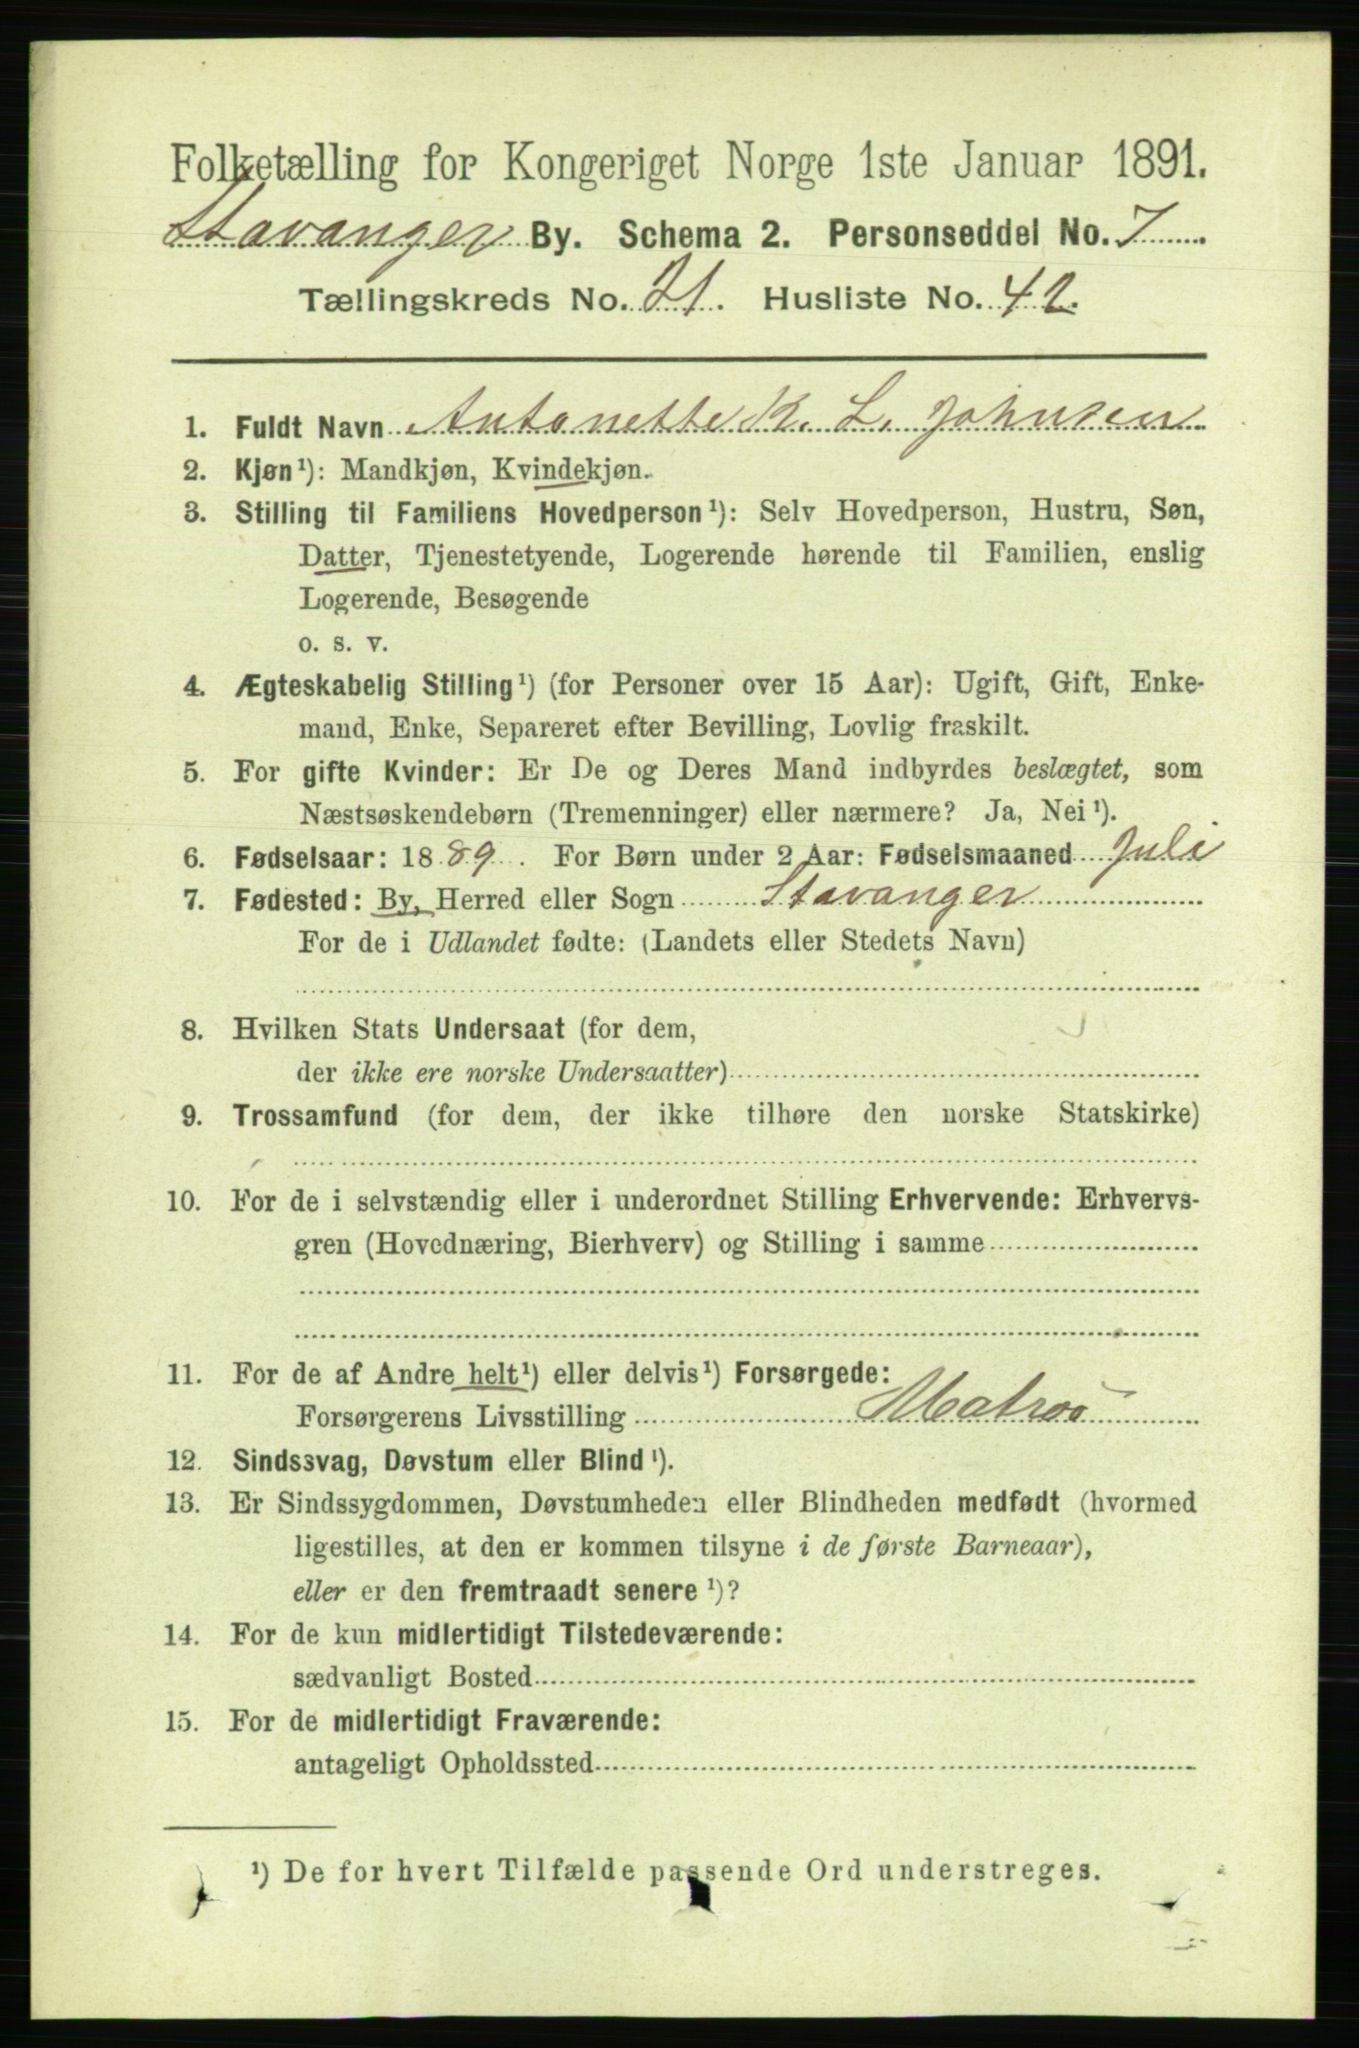 Folketælling for Kongeriget Norge 1ste Januar 1891.
Stavanger By. Schema 2. Personseddel No. 7
Tællingskreds No. 21. Husliste No. 42.
1. Fuldt Navn Antonette K. L. Johnsen
2. Kjøn¹): Mandkjøn, Kvindekjøn.
3. Stilling til Familiens Hovedperson¹): Selv Hovedperson, Hustru, Søn,
Datter, Tjenestetyende, Logerende hørende til Familien, enslig
Logerende, Besøgende
o. s. v.
4. Ægteskabelig Stilling¹) (for Personer over 15 Aar): Ugift, Gift, Enke-
mand, Enke, Separeret efter Bevilling, Lovlig fraskilt.
5. For gifte Kvinder: Er De og Deres Mand indbyrdes beslægtet, som
Næstsøskendebørn (Tremenninger) eller nærmere? Ja, Nei¹).
6. Fødselsaar: 1889. For Børn under 2 Aar: Fødselsmaaned Juli
7. Fødested: By, Herred eller Sogn Stavanger
For de i Udlandet fødte: (Landets eller Stedets Navn)
8. Hvilken Stats Undersaat (for dem,
der ikke ere norske Undersaatter)
9. Trossamfund (for dem, der ikke tilhøre den norske Statskirke)
10. For de i selvstændig eller i underordnet Stilling Erhvervende: Erhvervs-
gren (Hovednæring, Bierhverv) og Stilling i samme
11. For de af Andre helt¹) eller delvis¹) Forsørgede:
Forsørgerens Livsstilling Matros
12. Sindssvag, Døvstum eller Blind¹).
13. Er Sindssygdommen, Døvstumheden eller Blindheden medfødt (hvormed
ligestilles, at den er kommen tilsyne i de første Barneaar),
eller er den fremtraadt senere¹)?
14. For de kun midlertidigt Tilstedeværende:
sædvanligt Bosted
15. For de midlertidigt Fraværende:
antageligt Opholdssted
¹) De for hvert Tilfælde passende Ord understreges.